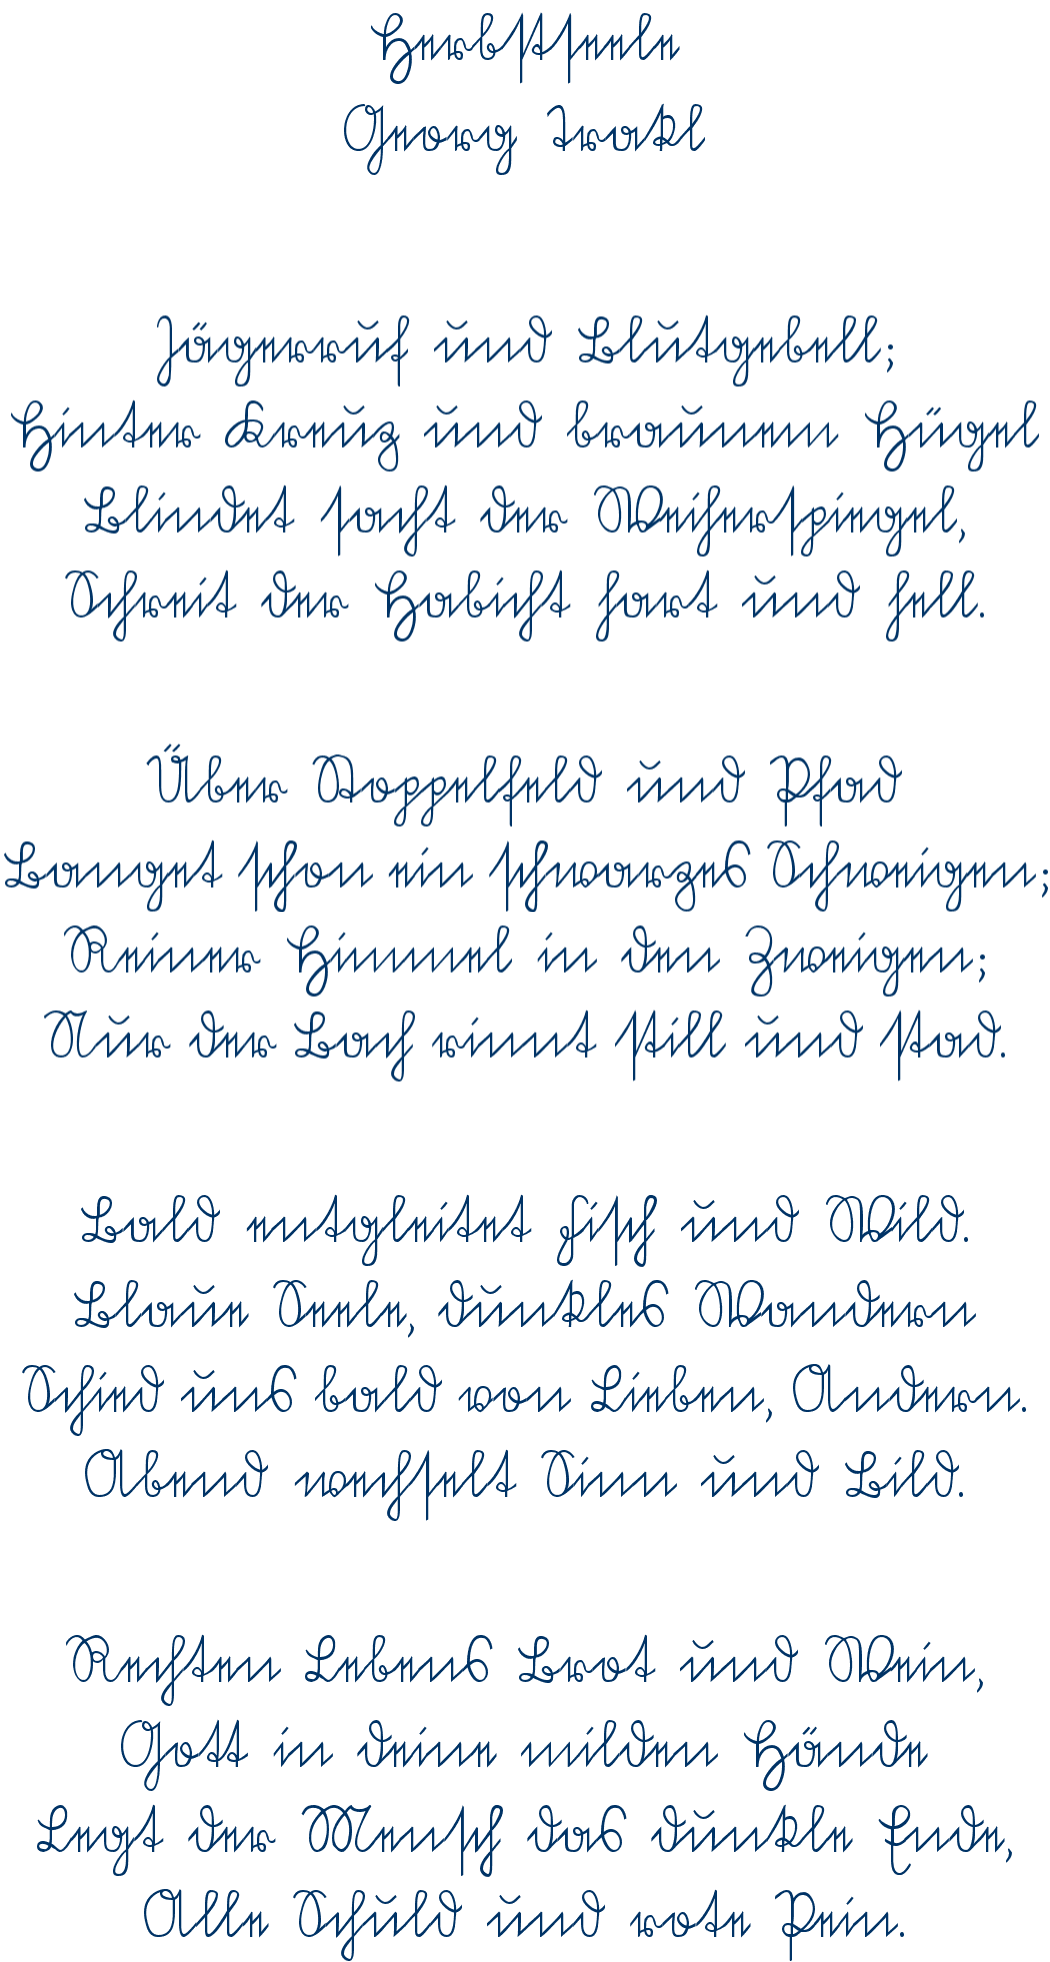 Herbstseele
Georg Trakl
Jägerruf und Blutgebell;
Hinter Kreuz und braunem Hügel
Blindet sacht der Weiherspiegel,
Schreit der Habicht hart und hell.
Über Stoppelfeld und Pfad
Banget schon ein schwarzes Schweigen;
Reiner Himmel in den Zweigen;
Nur der Bach rinnt still und stad.
Bald entgleitet Fisch und Wild.
Blaue Seele, dunkles Wandern
Schied uns bald von Lieben, Andern.
Abend wechselt Sinn und Bild.
Rechten Lebens Brot und Wein,
Gott in deine milden Hände
Legt der Mensch das dunkle Ende,
Alle Schuld und rote Pein.